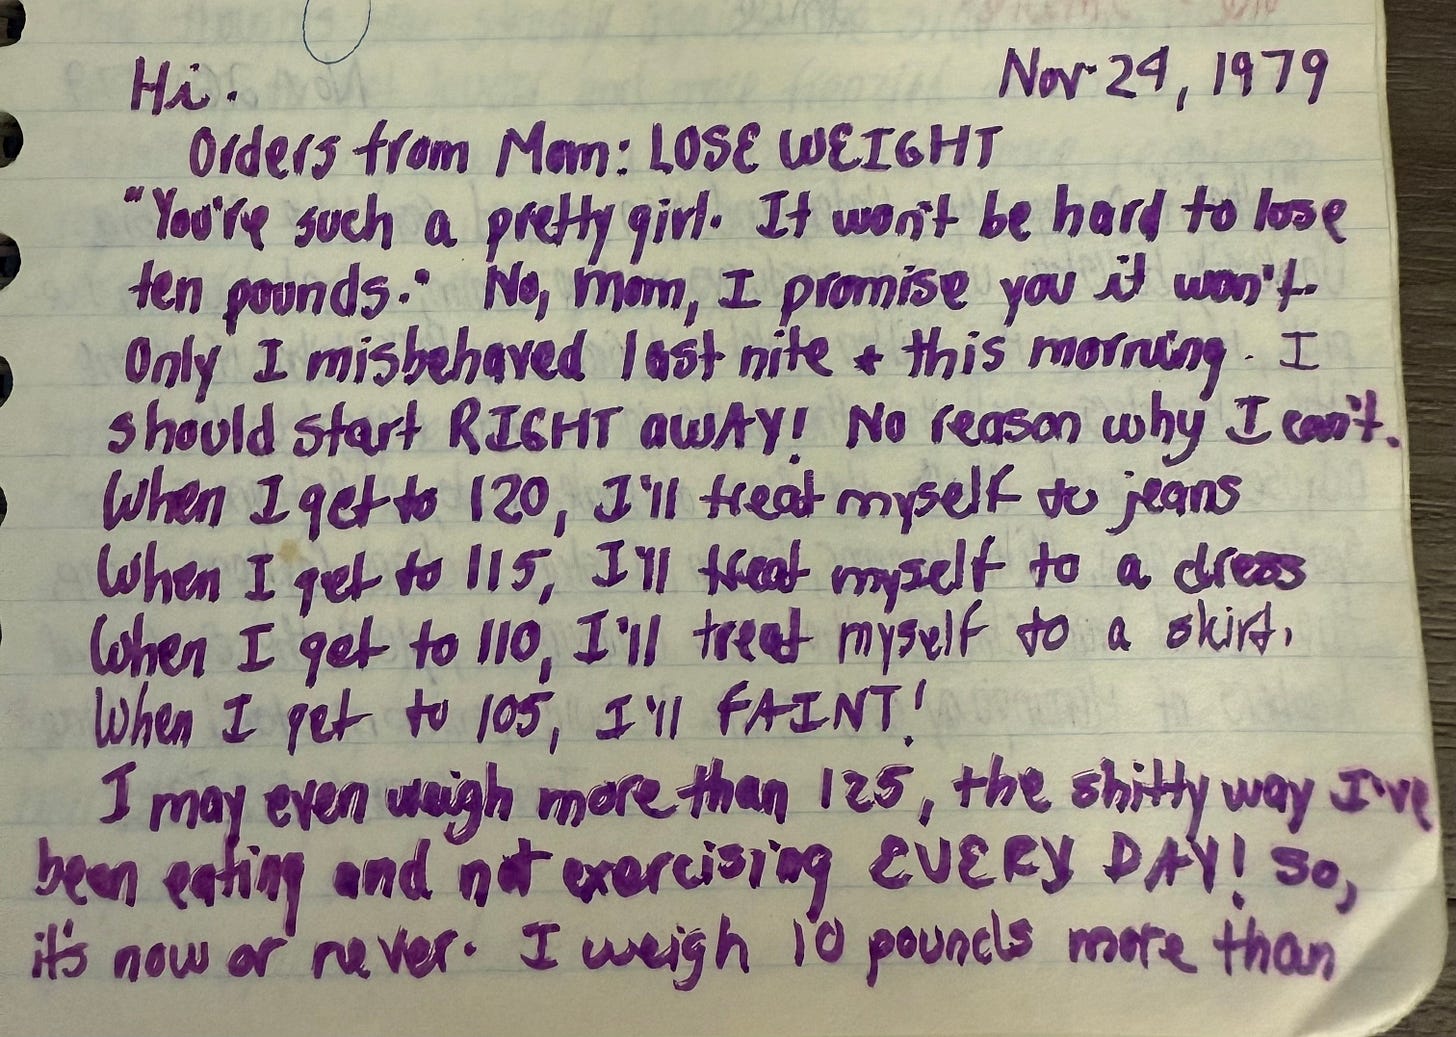 Hi. Nov 24, 1979
Orders from Mom: LOSE WEIGHT
"You're such a pretty girl. It won't be hard to lose
ten pounds." No, Mom, I promise you it won't.
Only I misbehaved last nite + this morning. I
should start RIGHT AWAY! No reason why I can't.
When I get to 120, I'll treat myself to jeans
When I get to 115, I'll treat myself to a dress
When I get to 110, I'll treat myself to a skirt.
When I get to 105, I'll FAINT!
I may even weigh more than 125, the shitty way I've
been eating and not exercising EVERY DAY! So,
it's now or never. I weigh 10 pounds more than